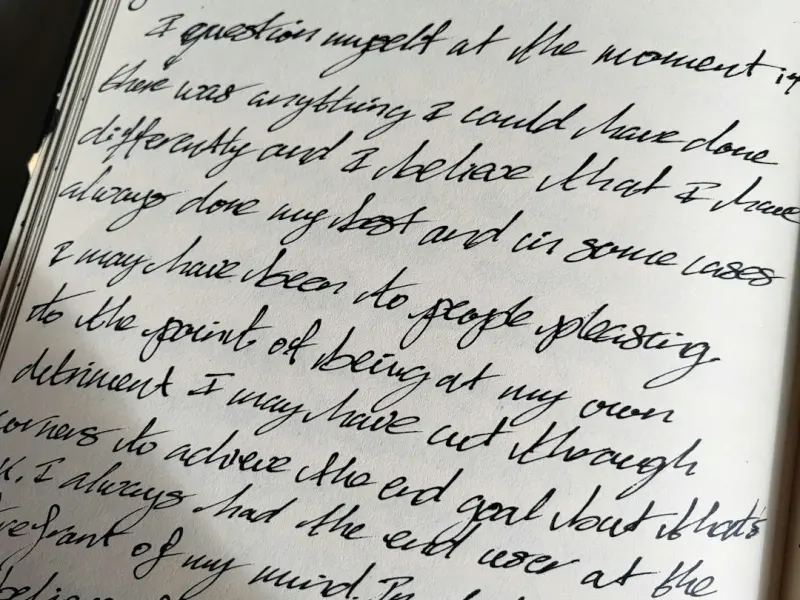 I question myself at the moment if
there was anything I could have done
differently and I believe that I have
always done my best and in some cases
I may have been to people pleasing
to the point of being at my own
detriment I may have cut through
corners to achieve the end goal but that's
I always had the end user at the
of my mind.